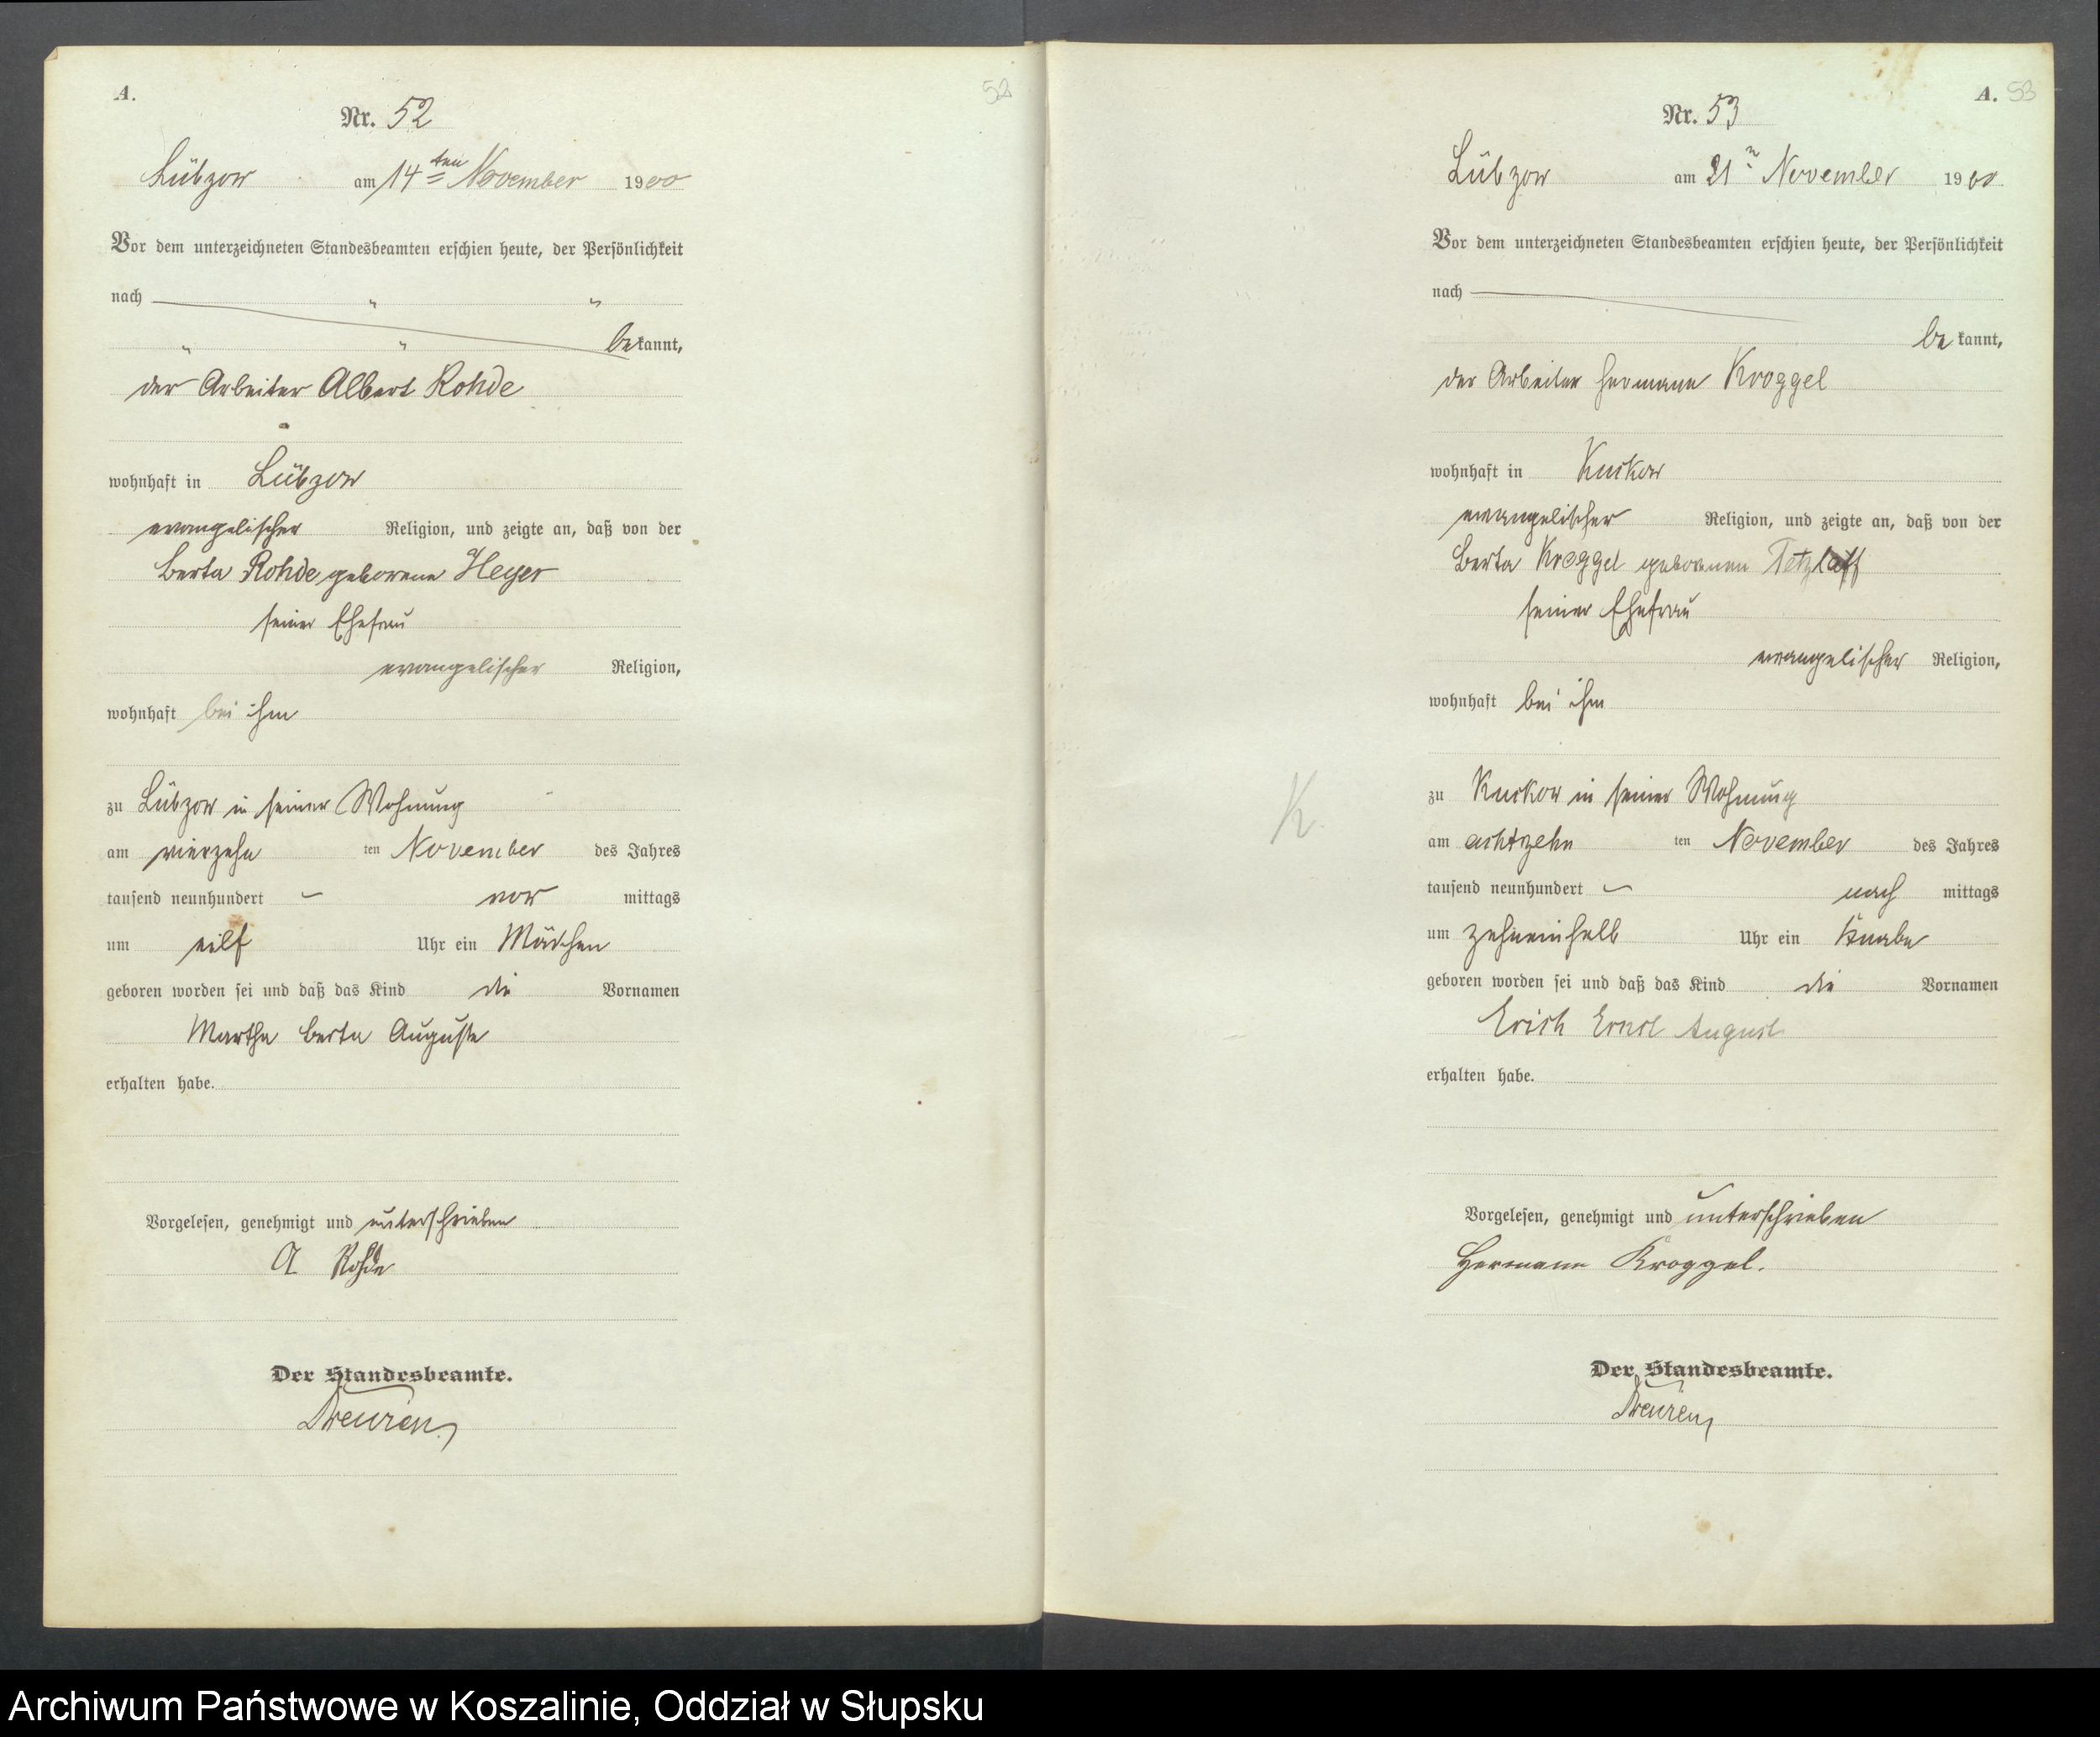 A.
52
Nr. 52
Lübzow am 14ten November 1900
Vor dem unterzeichneten Standesbeamten erschien heute, der Persönlichkeit
nach
bekannt,
der Arbeiter Albert Rohde
wohnhaft in Lübzow
evangelischer Religion, und zeigte an, daß von der
Berta Rohde geborene Heyer
seiner Ehefrau
evangelischer Religion,
wohnhaft bei ihm
zu Lübzow in seiner Wohnung
am vierzehn ten November des Jahres
tausend neunhundert – vor mittags
um eilf Uhr ein Mädchen
geboren worden sei und daß das Kind die Vornamen
Martha Berta Auguste
erhalten habe.
Vorgelesen, genehmigt und unterschrieben
A Rohde
Der Standesbeamte.
A. 53
Nr. 53
Lübzow am 21n November 1900
Vor dem unterzeichneten Standesbeamten erschien heute, der Persönlichkeit
nach
bekannt,
der Arbeiter Hermann Kroggel
wohnhaft in Kuskow
evangelischer Religion, und zeigte an, daß von der
Berta Kroggel geborenen Tetzlaff
seiner Ehefrau
evangelischer Religion,
wohnhaft bei ihm
K.
zu Kuskow in seiner Wohnung
am achtzehn ten November des Jahres
tausend neunhundert – nach mittags
um zehneinhalb Uhr ein Knabe
geboren worden sei und daß das Kind die Vornamen
Erich Ernst August
erhalten habe.
Vorgelesen, genehmigt und unterschrieben
Hermann Kroggel.
Der Standesbeamte.
Archiwum Państwowe w Koszalinie, Oddział w Słupsku